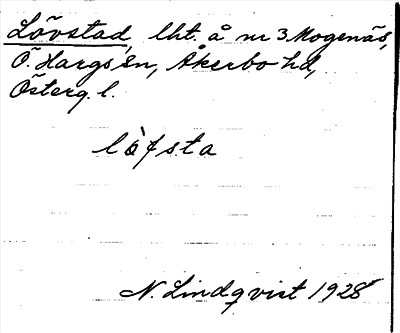 Lövstad, lht. å nr 3 Mogenäs,
Ö. Hargs sn, Åkerbo hd,
Österg. l.
lò̀fsta
N. Lindqvist 1928